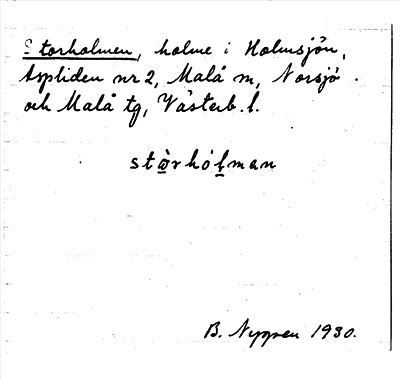 Storholmen, holme i Holmsjön,
Aspliden nr 2, Malå sn, Norsjö
och Malå tg, Västerb. l.
stårhólman
B. Nyppen 1930.